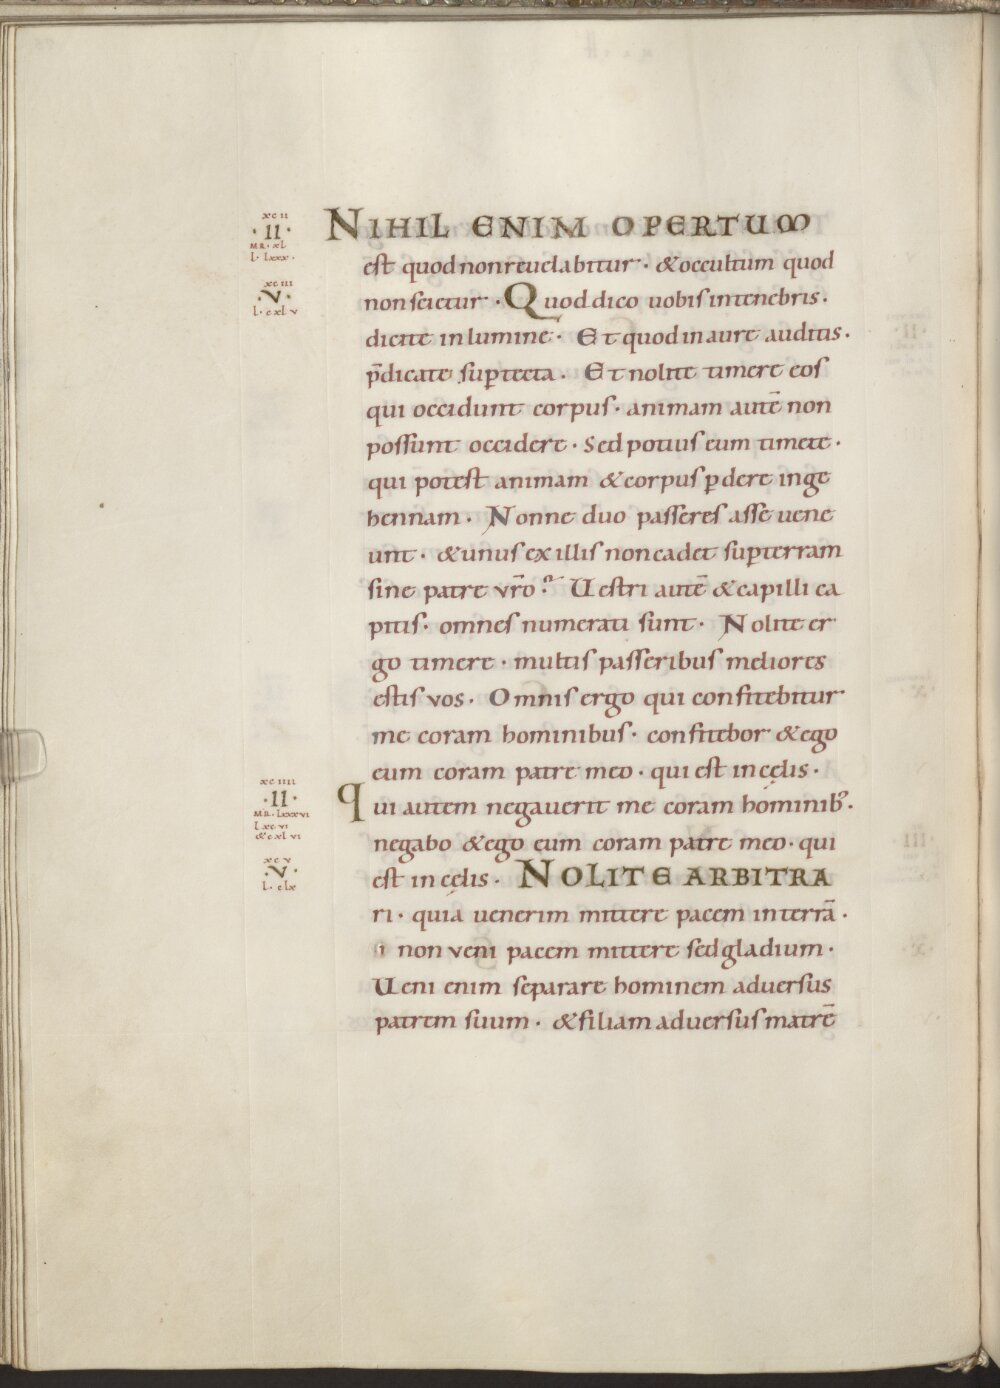 xcii
·II·
MR·xL
L·Lxxx·
NIHIL ENIM OPERTUM
est quod non reuelabitur· & occultum quod
xciii
·V·
L·cxLv
non scietur· Quod dico uobis in tenebris·
dicite in lumine· Et quod in aure auditis·
p̄dicate sup̱ tecta· Et nolite timere eos
qui occidunt corpus· animam autē non
possunt occidere· Sed potius eum timete·
qui potest animam & corpus p̱dere inge
hennam· Nonne duo passeres asse uene
unt· & unus ex illis non cadet sup̱ terram
sine patre vr̄o·? Uestri autē & capilli ca
pitis· omnes numerati sunt· Nolite er
go timere· multis passeribus meliores
estis vos· Omnis ergo qui confitebitur
me coram hominibus· confitebor & ego
eum coram patre meo· qui est in cęlis·
xciiii
·II·
MR·Lxxvi
Lxcvi
&cxLvi
qui autem negauerit me coram hominib;·
negabo & ego eum coram patre meo· qui
xcv
·V·
L·cLx
est in cęlis· NOLITE ARBITRA
ri· quia uenerim mittere pacem in terrā·
non veni pacem mittere sed gladium·
Ueni enim separare hominem aduersus
patrem suum· & filiam aduersus matrē